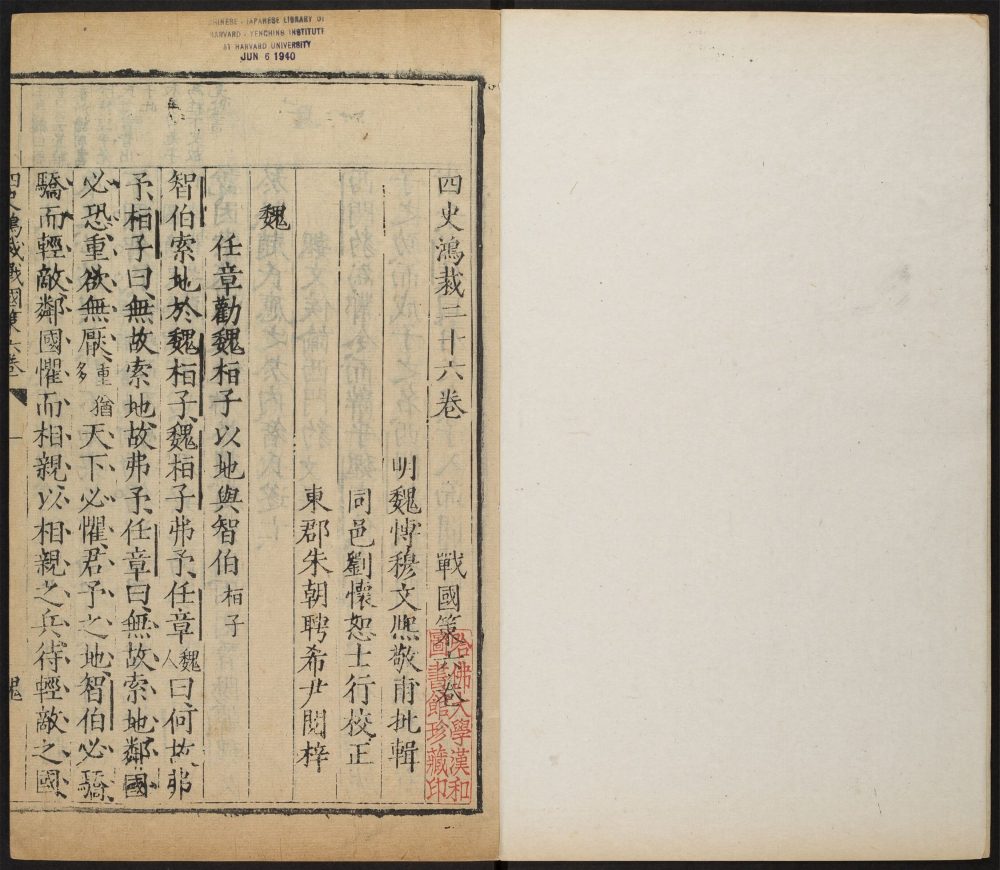 CHINESE - JAPANESE LIBRARY OF
HARVARD - YENCHING INSTITUTE
AT HARVARD UNIVERSITY
JUN 6 1940
四史鴻裁三十六卷 戰國策六卷
明魏慱穆文熈敬甫批輯
同邑劉懷恕士行校正
東郡朱朝聘希尹閱梓
魏
任章勸魏桓子以地與智伯桓子
智伯索地於魏桓子魏桓子弗予任章魏人曰何故弗
予桓子曰無故索地故弗予任章曰無故索地鄰國
必恐重欲無厭重猶多天下必懼君予之地智伯必驕
驕而輕敵鄰國懼而相親以相親之兵待輕敵之國
四史鴻裁戰國策六卷 一 魏
哈佛大學漢和
圖書館珍藏印